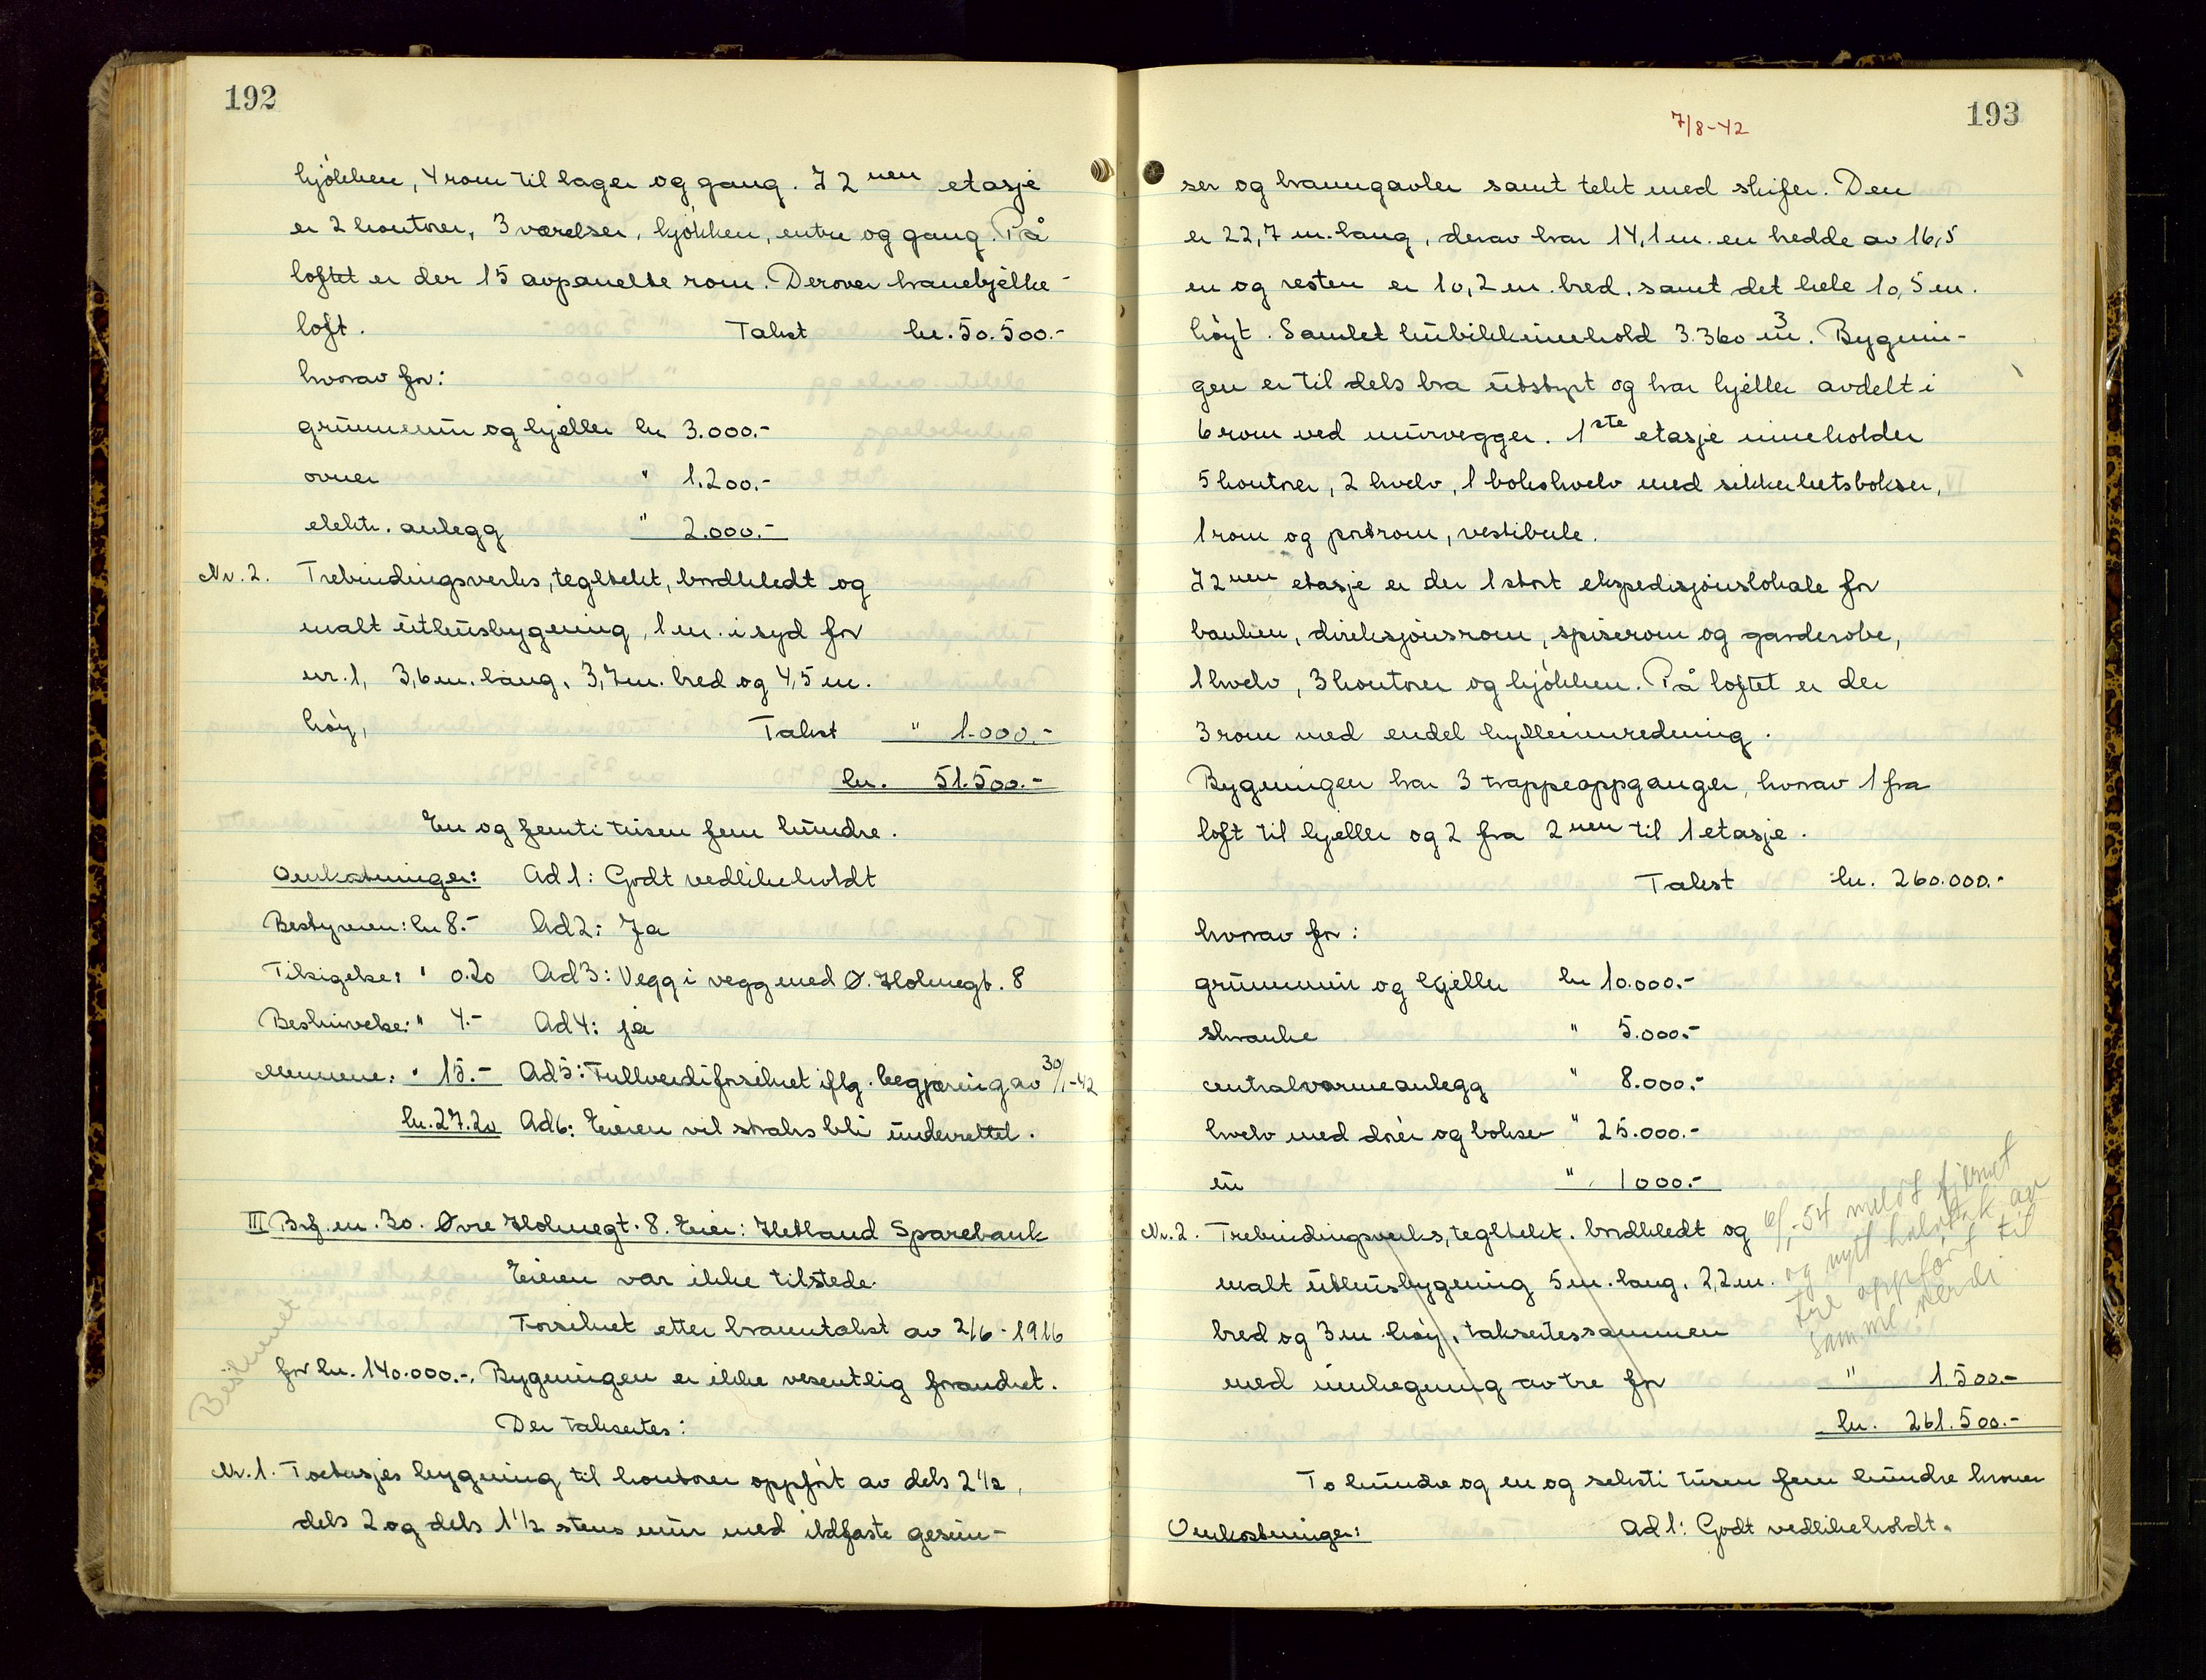 192
kjökken, 4 rom til lager og gang. I 2nen etasje
er 2 kontorer, 3 værelser, kjökken, entre og gang. På
loftet er der 15 avpanelte rom. Derover hanebjelke-
loft. Takst kr. 50.500.-
hvorav for:
grunnmur og kjeller kr 3.000.-
ovner " 1.200.-
elektr. anlegg " 2.000.-
Nr. 2. Trebindingsverks, tegltekt, bordkledt og
malt uthusbygning, 1 m. i syd for
nr. 1, 3,6 m. lang, 3,7 m. bred og 4,5 m.
høy, Takst " 1.000.-
kr. 51.500.-
En og femti tusen fem hundre.
Omkostninger: Ad 1: Godt vedlikeholdt
Bestyreren: kr 8.- Ad 2: Ja
Tilsigelse: " 0.20 Ad 3: Vegg i vegg med Ø. Holmegt. 8
Beskrivelse: " 4.- Ad 4: ja
Mennene: " 15.- Ad 5: Fullverdiforsikret iflg. begjæring av 30/1-42
kr. 27.20 Ad 6: Eieren vil straks bli underrettet.
III Brf. nr. 30. Øvre Holmegt. 8. Eier: Hetland Sparebank
Eieren var ikke tilstede.
Forsikret etter branntakst av 2/6-1916
for kr. 140.000.-. Bygningen er ikke vesentlig forandret.
Der takseres:
Nr. 1. Toetasjes bygning til kontorer oppført av dels 2 1/2,
dels 2 og dels 1 1/2 stens mur med ildfaste gesim-
193
7/8-42
ser og branngavler samt tekt med skifer. Den
er 22,7 m. lang, derav har 14,1 m. en bredde av 16,5
m og resten er 10,2 m. bred, samt det hele 10,5 m.
höyt. Samlet kubikkinnehold 3.360 m3. Bygnin-
gen er til dels bra utstyrt og har kjeller avdelt i
6 rom ved murvegger. 1ste etasje inneholder
5 kontorer, 2 hvelv, 1 bokshvelv med sikkerhetsbokser,
1 rom og portrom, vestibule.
I 2nen etasje er der 1 stort ekspedisjonslokale for
banken, direksjonsrom, spiserom og garderobe,
1 hvelv, 3 kontorer og kjökken. På loftet er der
3 rom med endel hylleinnredning.
Bygningen har 3 trappeoppganger, hvorav 1 fra
loft til kjeller og 2 fra 2nen til 1 etasje.
Takst kr. 260.000.-
hvorav for:
grunnmur og kjeller kr 10.000.-
skranke " 5.000.-
centralvarmeanlegg " 8.000.-
hvelv med dører og bokser " 25.000.-
ur " 1000.-
Nr. 2. Trebindingsverks, tegltekt. bordkledt og
malt uthusbygning 5 m. lang, 2,2 m.
bred og 3 m. høy, takseres sammen
med innhegning av tre for " 1.500.-
-54 meldt fjernet
og nytt halvtak av
tre oppført til
samme verdi
kr. 261.500.-
To hundre og en og seksti tusen fem hundre kroner
Omkostninger: Ad 1: Godt vedlikeholdt.